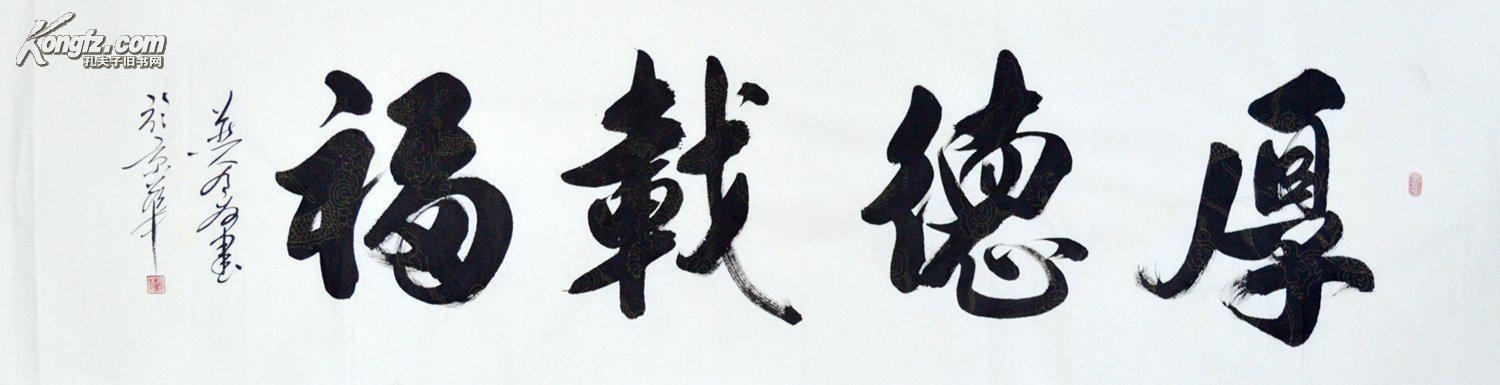 厚德載福
於京華
Kongfz.com
孔夫子旧书网